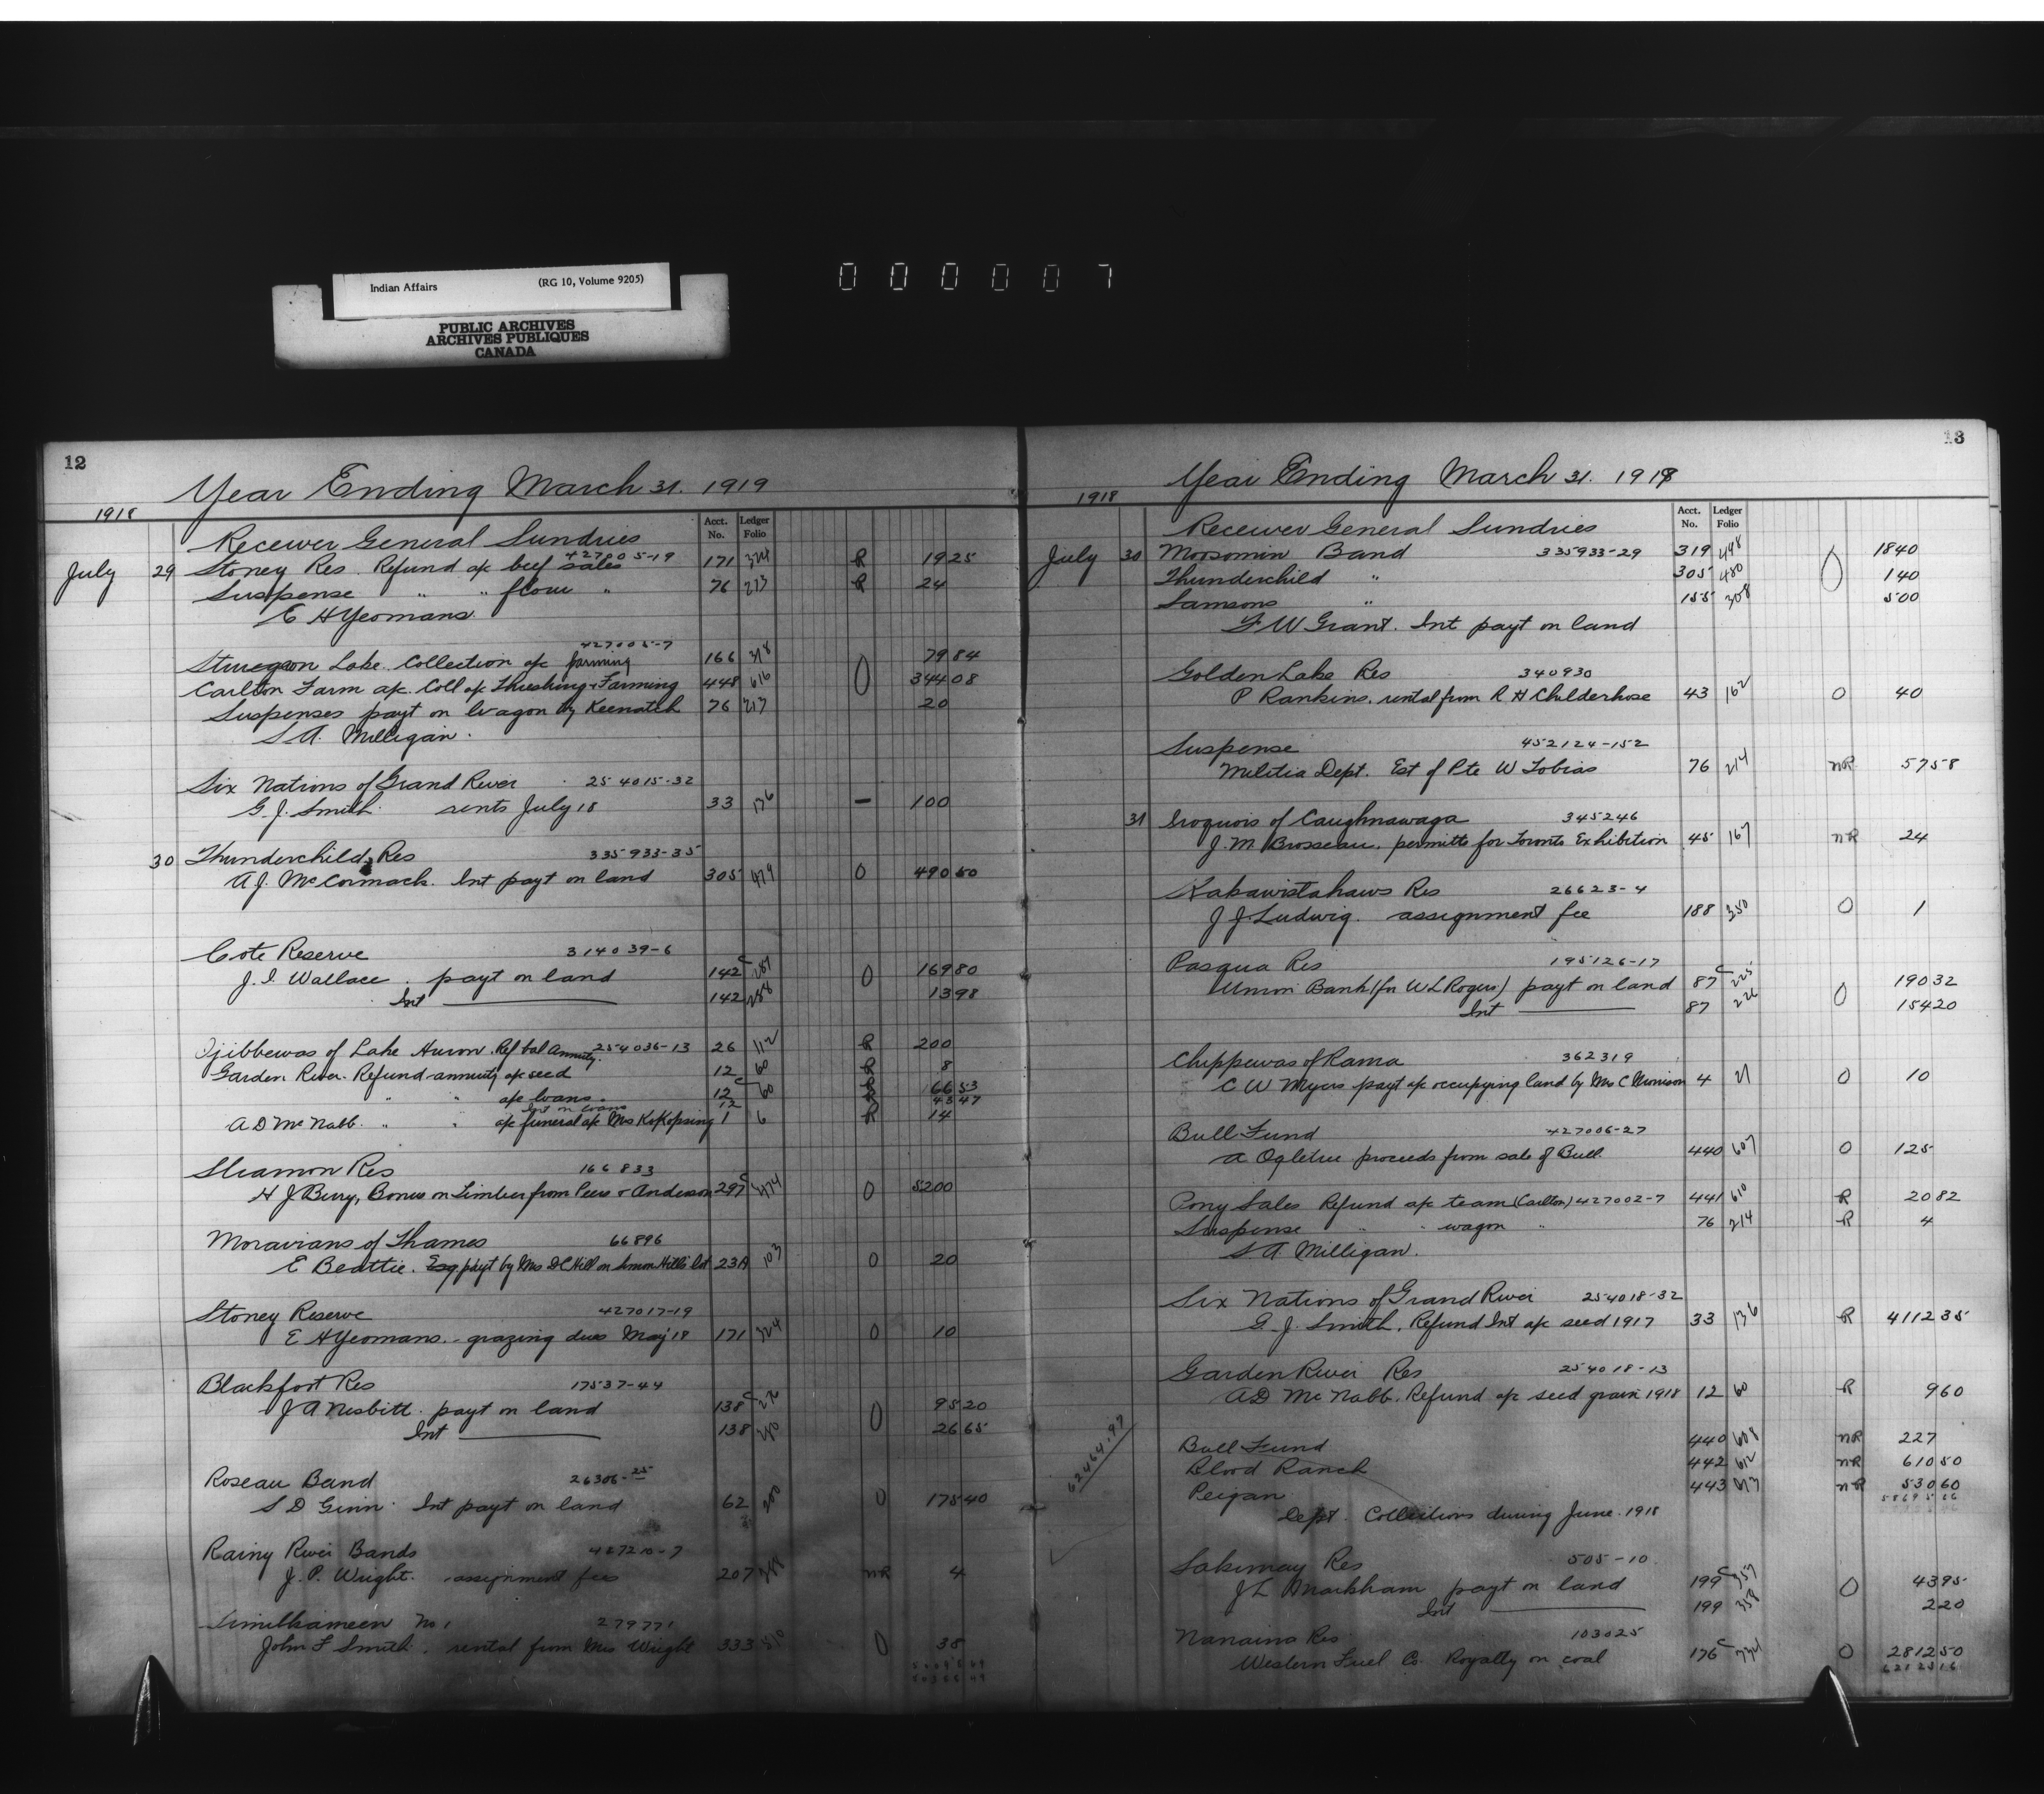 Indian Affairs (RG 10, Volume 9205)
PUBLIC ARCHIVES
ARCHIVES PUBLIQUES
CANADA
000007
12
Year Ending March 31. 1919
1918
Acct. No. Ledger Folio
Receiver General Sundries
427005-19
July 29 Stoney Res. Refund a/c beef sales 171 324 R 19 25
Suspense " " flour " 76 213 R 24
E H Yeomans
427005-7
Sturgeon Lake. Collection a/c farming 166 318 0 79 84
Carlton Farm a/c. Coll a/c Threshing & Farming 448 616 344 08
Suspenses payt on wagon by Keenatch 76 213 20
S. A. Milligan.
Six Nations of Grand River 254015-32
G. J. Smith. rents July 18 33 136 — 100
30 Thunderchilds Res 335933-35
A J. McCormack. Int payt on land 305 479 0 490 50
Cote Reserve 314039-6
J. I. Wallace. payt on land 142c 287 0 169 80
Int 142 288 13 98
Ojibbewas of Lake Huron. Ref bal Annuity. 254036-13 26 112 R 200
Garden River. Refund annuity a/c seed 12 60 R 8
" " a/c loans. 12c 60 R 166 53
Int on loans 12 R 43 47
A D McNabb. " " a/c funeral a/c Mrs KoKopsing 1 6 R 14
Sliamon Res 166833
H J Bury, Bonus on Timber from Peers & Anderson 297c 474 0 5200
Moravians of Thames 66896
E Beattie. payt by Mrs D C Hill on Simon Hill's lot 23A 103 0 20
Stoney Reserve 427017-19
E H Yeomans. grazing dues May 18 171 324 0 10
Blackfoot Res 17537-44
J A Nesbitt. payt on land 138c 276 0 95 20
Int 138 280 26 65
Roseau Band 26306-25
S D Ginn. Int payt on land 62 200 0 175 40
Rainy River Bands 427210-7
J. P. Wright. assignment fees 207 368 NR 4
Similkameen No 1 279771
John F Smith. rental from Mrs Wright 333 510 0 38
13
Year Ending March 31. 1919
1918
Acct. No. Ledger Folio
Receiver General Sundries
July 30 Moosomin Band 335933-29 319 498 0 18 40
Thunderchild " 305 480 1 40
Samsons " 155 308 5 00
F W Grant. Int payt on land
Golden Lake Res 340930
P Rankins. rental from R H Childerhose 43 162 0 40
Suspense 452124-152
Militia Dept. Est of Pte W Tobias 76 214 NR 57 58
31 Iroquois of Caughnawaga 345246
J. M Brosseau. permitts for Toronto Exhibition 45 167 NR 24
Kakawistahaws Res 26623-4
J J Ludwig. assignment fee 188 350 0 1
Pasqua Res 195126-17
Union Bank (for W L Rogers) payt on land 87c 225 0 190 32
Int 87 226 154 20
Chippewas of Rama 362319
C W Myers payt a/c occupying land by Mrs C Morrison 4 21 0 10
Bull Fund 427006-27
A Ogletree proceeds from sale of Bull. 440 607 0 125
Pony Sales Refund a/c team (Carlton) 427002-7 441 610 R 20 82
Suspense " " wagon " 76 214 R 4
S. A. Milligan.
Six Nations of Grand River 254018-32
G. J. Smith, Refund Int a/c seed 1917 33 136 R 4112 35
Garden River Res 254018-13
A D McNabb. Refund a/c seed grain 1918 12 60 R 9 60
62464.97
Bull Fund 440 608 NR 227
Blood Ranch 442 612 NR 610 50
Peigan 443 613 NR 530 60
Dept. Collections during June. 1918
Sakimay Res 505-10
J L Markham payt on land 199c 357 0 43 95
Int 199 358 2 20
Nanaimo Res 103025
Western Fuel Co. Royalty on coal 176c 334 0 2812 50